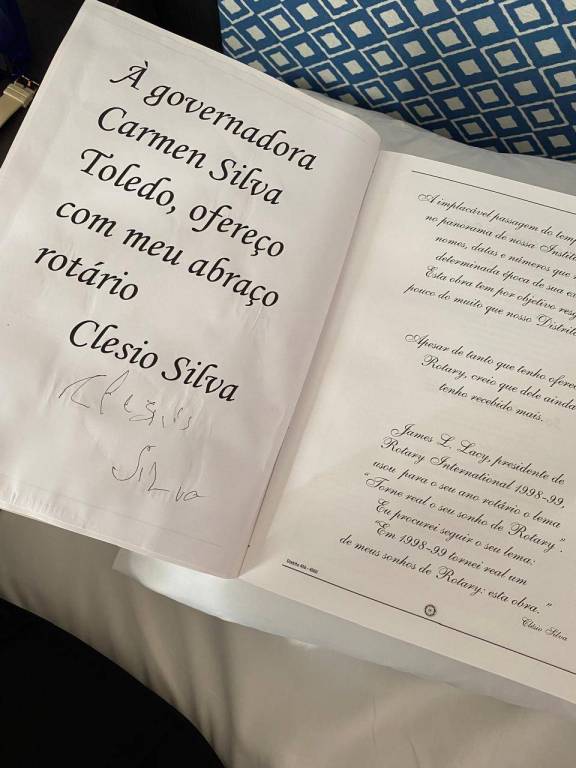 À governadora
Carmen Silva
Toledo, ofereço
com meu abraço
rotário
Clesio Silva
Clesio
Silva
A implacável passagem do temp
no panorama de nossa Institu
nomes, datas e números que
determinada época de sua
Esta obra tem por objetivo resg
pouco do muito que nosso Distrit
Apesar de tanto que tenho ofere
Rotary, creio que dele ainda
tenho recebido mais.
James L. Lacy, presidente de
Rotary International 1998-99,
usou para o seu ano rotário o lema
"Torne real o seu sonho de Rotary".
Eu procurei seguir o seu lema:
"Em 1998-99 tornei real um
de meus sonhos de Rotary: esta obra."
Clésio Silva